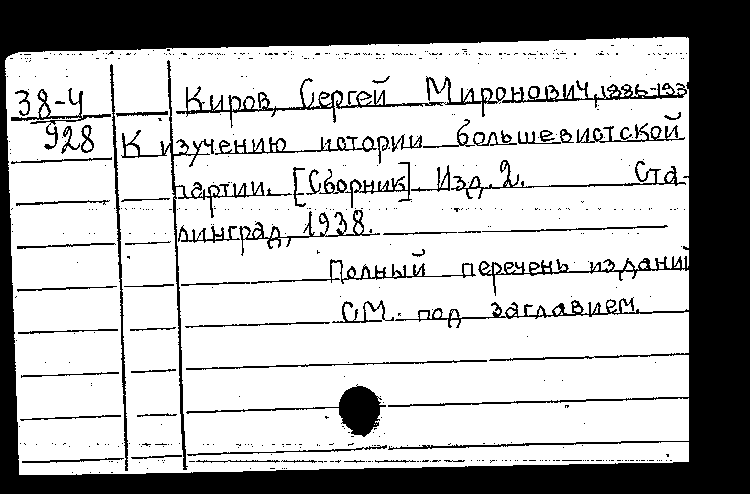 38-4 Киров, Сергей Миронович, 1886-193
928 К изучению истории большевистской
партии. [Сборник]. Изд. 2. Ста-
линград, 1938.
Полный перечень изданий
см. под заглавием.